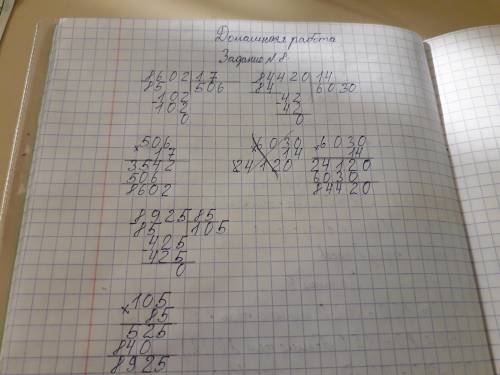 Домашняя работа
Задание № 8.
8602 17 84420 14
85 506 84 6030
-102 -42
102 42
0 0
506 6030 6030
×17 14 ×14
3542 24120 24120
506 6030
8602 84420
8925 85
85 105
-425
425
0
×105
85
525
840
8925